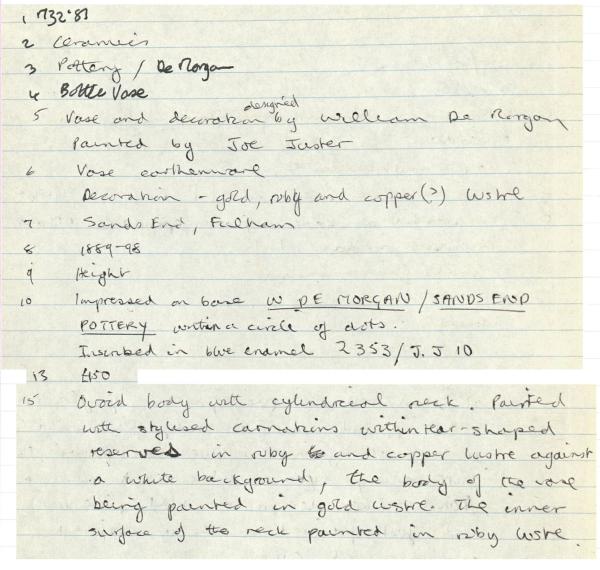 1 732'83
2 Ceramics
3 Pottery / De Morgan
4 Bottle Vase
5 Vase and decoration designed by William De Morgan
Painted by Joe Juster
6 Vase earthenware
Decoration - gold, ruby and copper(?) lustre
7 Sands End, Fulham
8 1889-98
9 Height
10 Impressed on base W DE MORGAN / SANDS END
POTTERY within a circle of dots.
Inscribed in blue enamel 2353/J.J 10
13 £450
15 Ovoid body with cylindrical neck. Painted
with stylised carnations within tear-shaped
reserved in ruby and copper lustre against
a white background, the body of the vase
being painted in gold lustre. The inner
surface of the neck painted in ruby lustre.